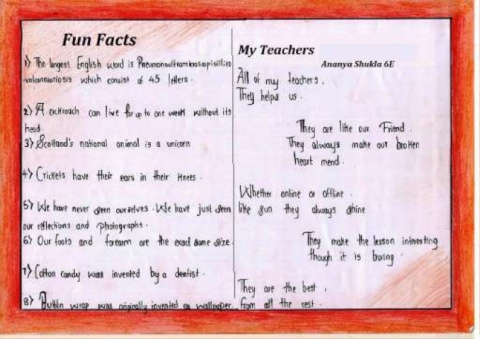 Fun Facts
1) The largest English word is
which consist of 45 letters.
2) A cockroach can live for up to one week without its
head.
3) Scotland's national animal is a unicorn
4) Crickets have their ears in their knees.
5) We have never seen ourselves. We have just seen
our reflections and photographs.
6) Our foots and forearm are the exact same size.
7) Cotton candy was invented by a dentist.
8) wrap was originally invented as wallpaper.
My Teachers
Ananya Shukla 6E
All of my teachers,
They helps us.
They are like our Friend.
They always make our broken
heart mend.
Whether online or offline
like sun they always shine
They make the lesson
though it is boring.
They are the best,
from all the rest.